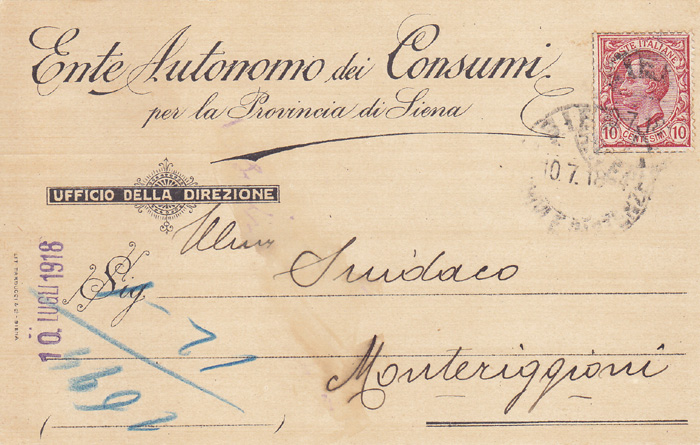 Ente Autonomo dei Consumi
per la Provincia di Siena
POSTE ITALIANE
10 CENTESIMI 10
10.7.18
UFFICIO DELLA DIREZIONE
Illmo
Sig. Sindaco
Monteriggioni
10 LUGLI 1918